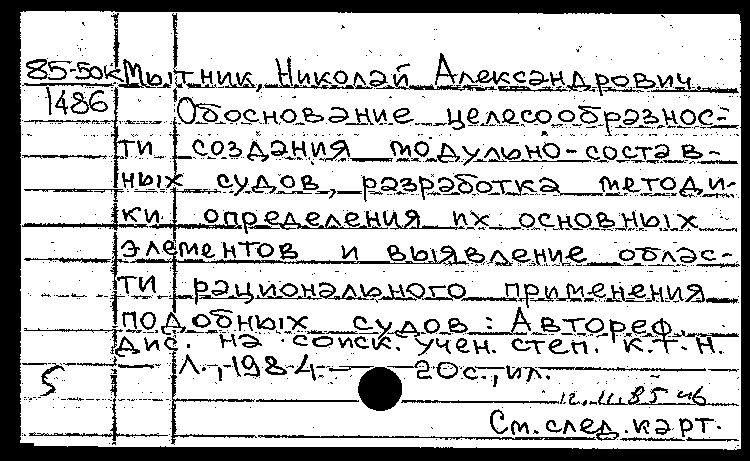 85-50к Мытник, Николай Александрович
1486 Обоснование целесообразнос-
ти создания модульно-состав-
ных судов, разработка методи-
ки определения их основных
элементов и выявление облас-
ти рационального применения
подобных судов: Автореф.
дис. на соиск. учен. степ. к.т.н.
— Л., 1984. — 20с., ил.
5
12.11.85
См. след. карт.